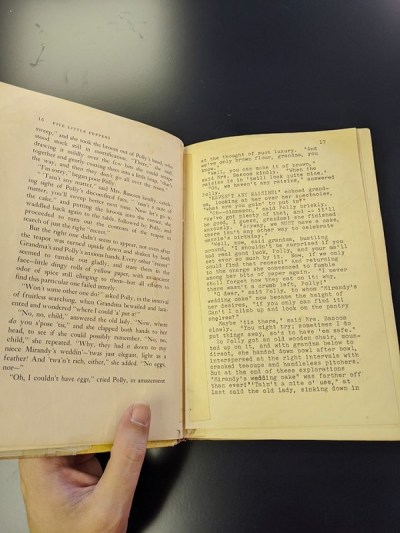 16 FIVE LITTLE PEPPERS
room," and she took the broom out of Polly's hand, who
stood stock still in mortification. "There," she said,
drawing it mildly over the few bits she could
together and gently coaxing them into a little heap, "that's
the way, and then they don't go all over the room."
"I'm sorry," began poor Polly.
"'Tain't any matter," said Mrs. Bascom kindly, catch-
ing sight of Polly's discomfited face, "'tain't a mite of
matter; you'll sweep better next time. Now let's go to
the cake," and putting the broom into the corner, she
waddled back again to the table, followed by Polly, and
proceeded to turn out the contents of the teapot in
search of just the right "receet."
But the right one didn't seem to appear; not even after
the teapot was turned upside down and shaken by both
Grandma's and Polly's anxious hands. Every other "receet"
seemed to tumble out gladly, and stare them in the
face—little dingy rolls of yellow paper, with an ancient
odor of spice still clinging to them—but all efforts to
find this particular one failed utterly.
"Won't some other one do?" asked Polly, in the interval
of fruitless searching, when Grandma bewailed and lam-
ented and wondered "where I could 'a put it!"
"No, no, child," answered the old lady. "Now, where
do you s'pose 'tis," and she clapped both hands to her
head, to see if she could possibly remember. "No, no,
child," she repeated. "Why, they had it down to my
niece Mirandy's weddin'—'twas just elegant, light as a
feather! And 'twa'n't rich, either," she added. "No eggs,
nor—"
"Oh, I couldn't have eggs," cried Polly, in amazement
17
at the thought of such luxury. "And
we've only brown flour, grandma, you
know."
"Well, you can make it of brown,"
said Mrs. Bascom kindly. "When the
raisins is in 'twill look quite nice."
"Oh, we haven't any raisins," answered
Polly.
"HAVEN'T ANY RAISINS!" echoed grand-
ma, looking at her over her spectacles,
"what are you goin' to put in?"
"Oh—cinnamon," said Polly briskly,
"we've got plenty of that, and — it'll
be good, I guess, grandma! she finished
anxiously. "Anyway, we MUST have a cake;
there isn't any other way to celebrate
mamsie's birthday."
"Well, now," said grandma, bustling
around, "I shouldn't be surprised if you
had real good luck, Polly, and your ma'll
set ever so much by it. Now, if we only
could find that receet!" and returning
to the charge she commenced to fumble
among her bits of paper again. "I never
shall forget how they eat on it; why,
there wasn't a crumb left, Polly!"
"O dear," said Polly, to whom "Mirandy's
wedding cake" now became the height of
her desires, "if you only can find it!
Can't I climb up and look on the pantry
shelves?"
Maybe 'tis there," said Mrs. Bascom
slowly. "You might try; sometimes I do
put things away, so's to have 'em safe."
So Polly got an old wooden chair, moun-
ted up on it, and with grandma below to
direct, she handed down bowl after bowl,
interspersed at the right intervals with
cracked teacups and handleless pitchers.
But at the end of these explorations
"Mirandy's wedding cake" was farther off
than ever!"'Tain't a mite o' use," at
last said the old lady, sinking down in